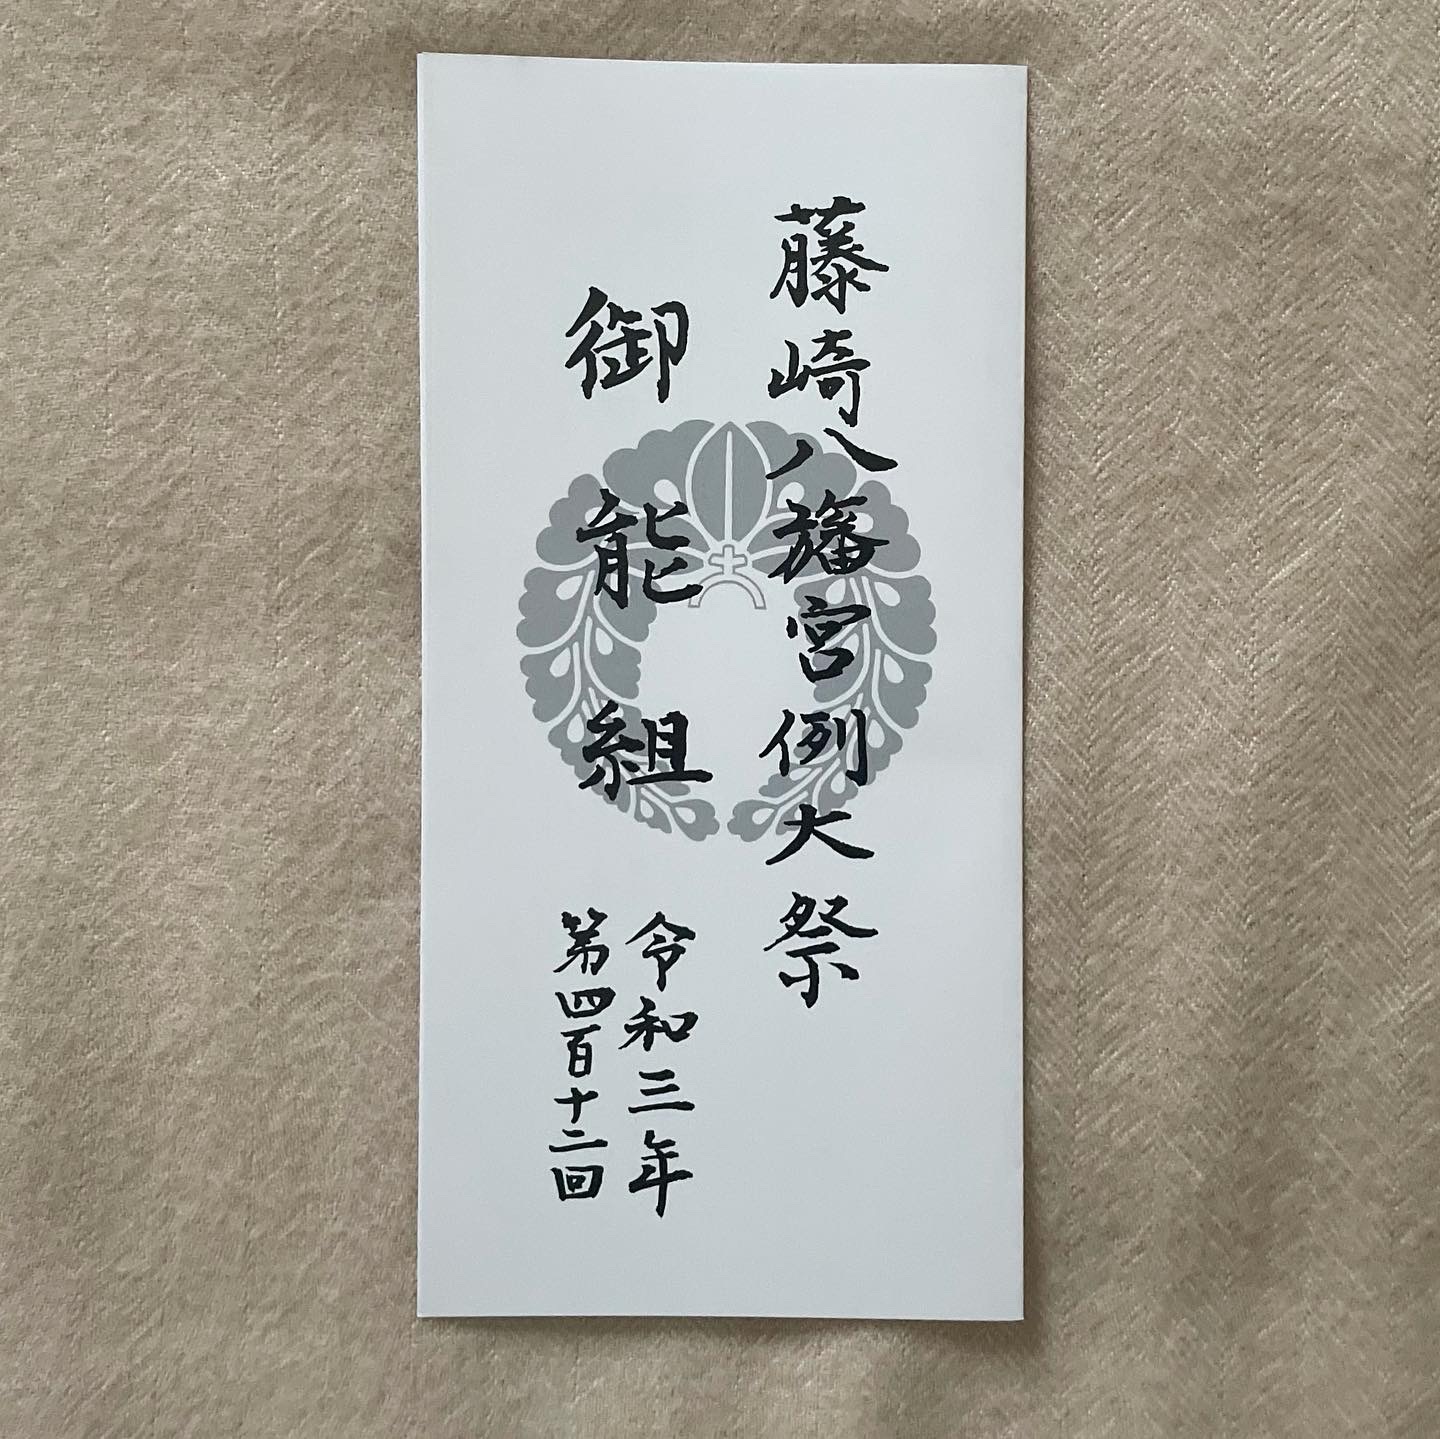 藤崎八旛宮例大祭
御能組
令和三年
第四百十二回